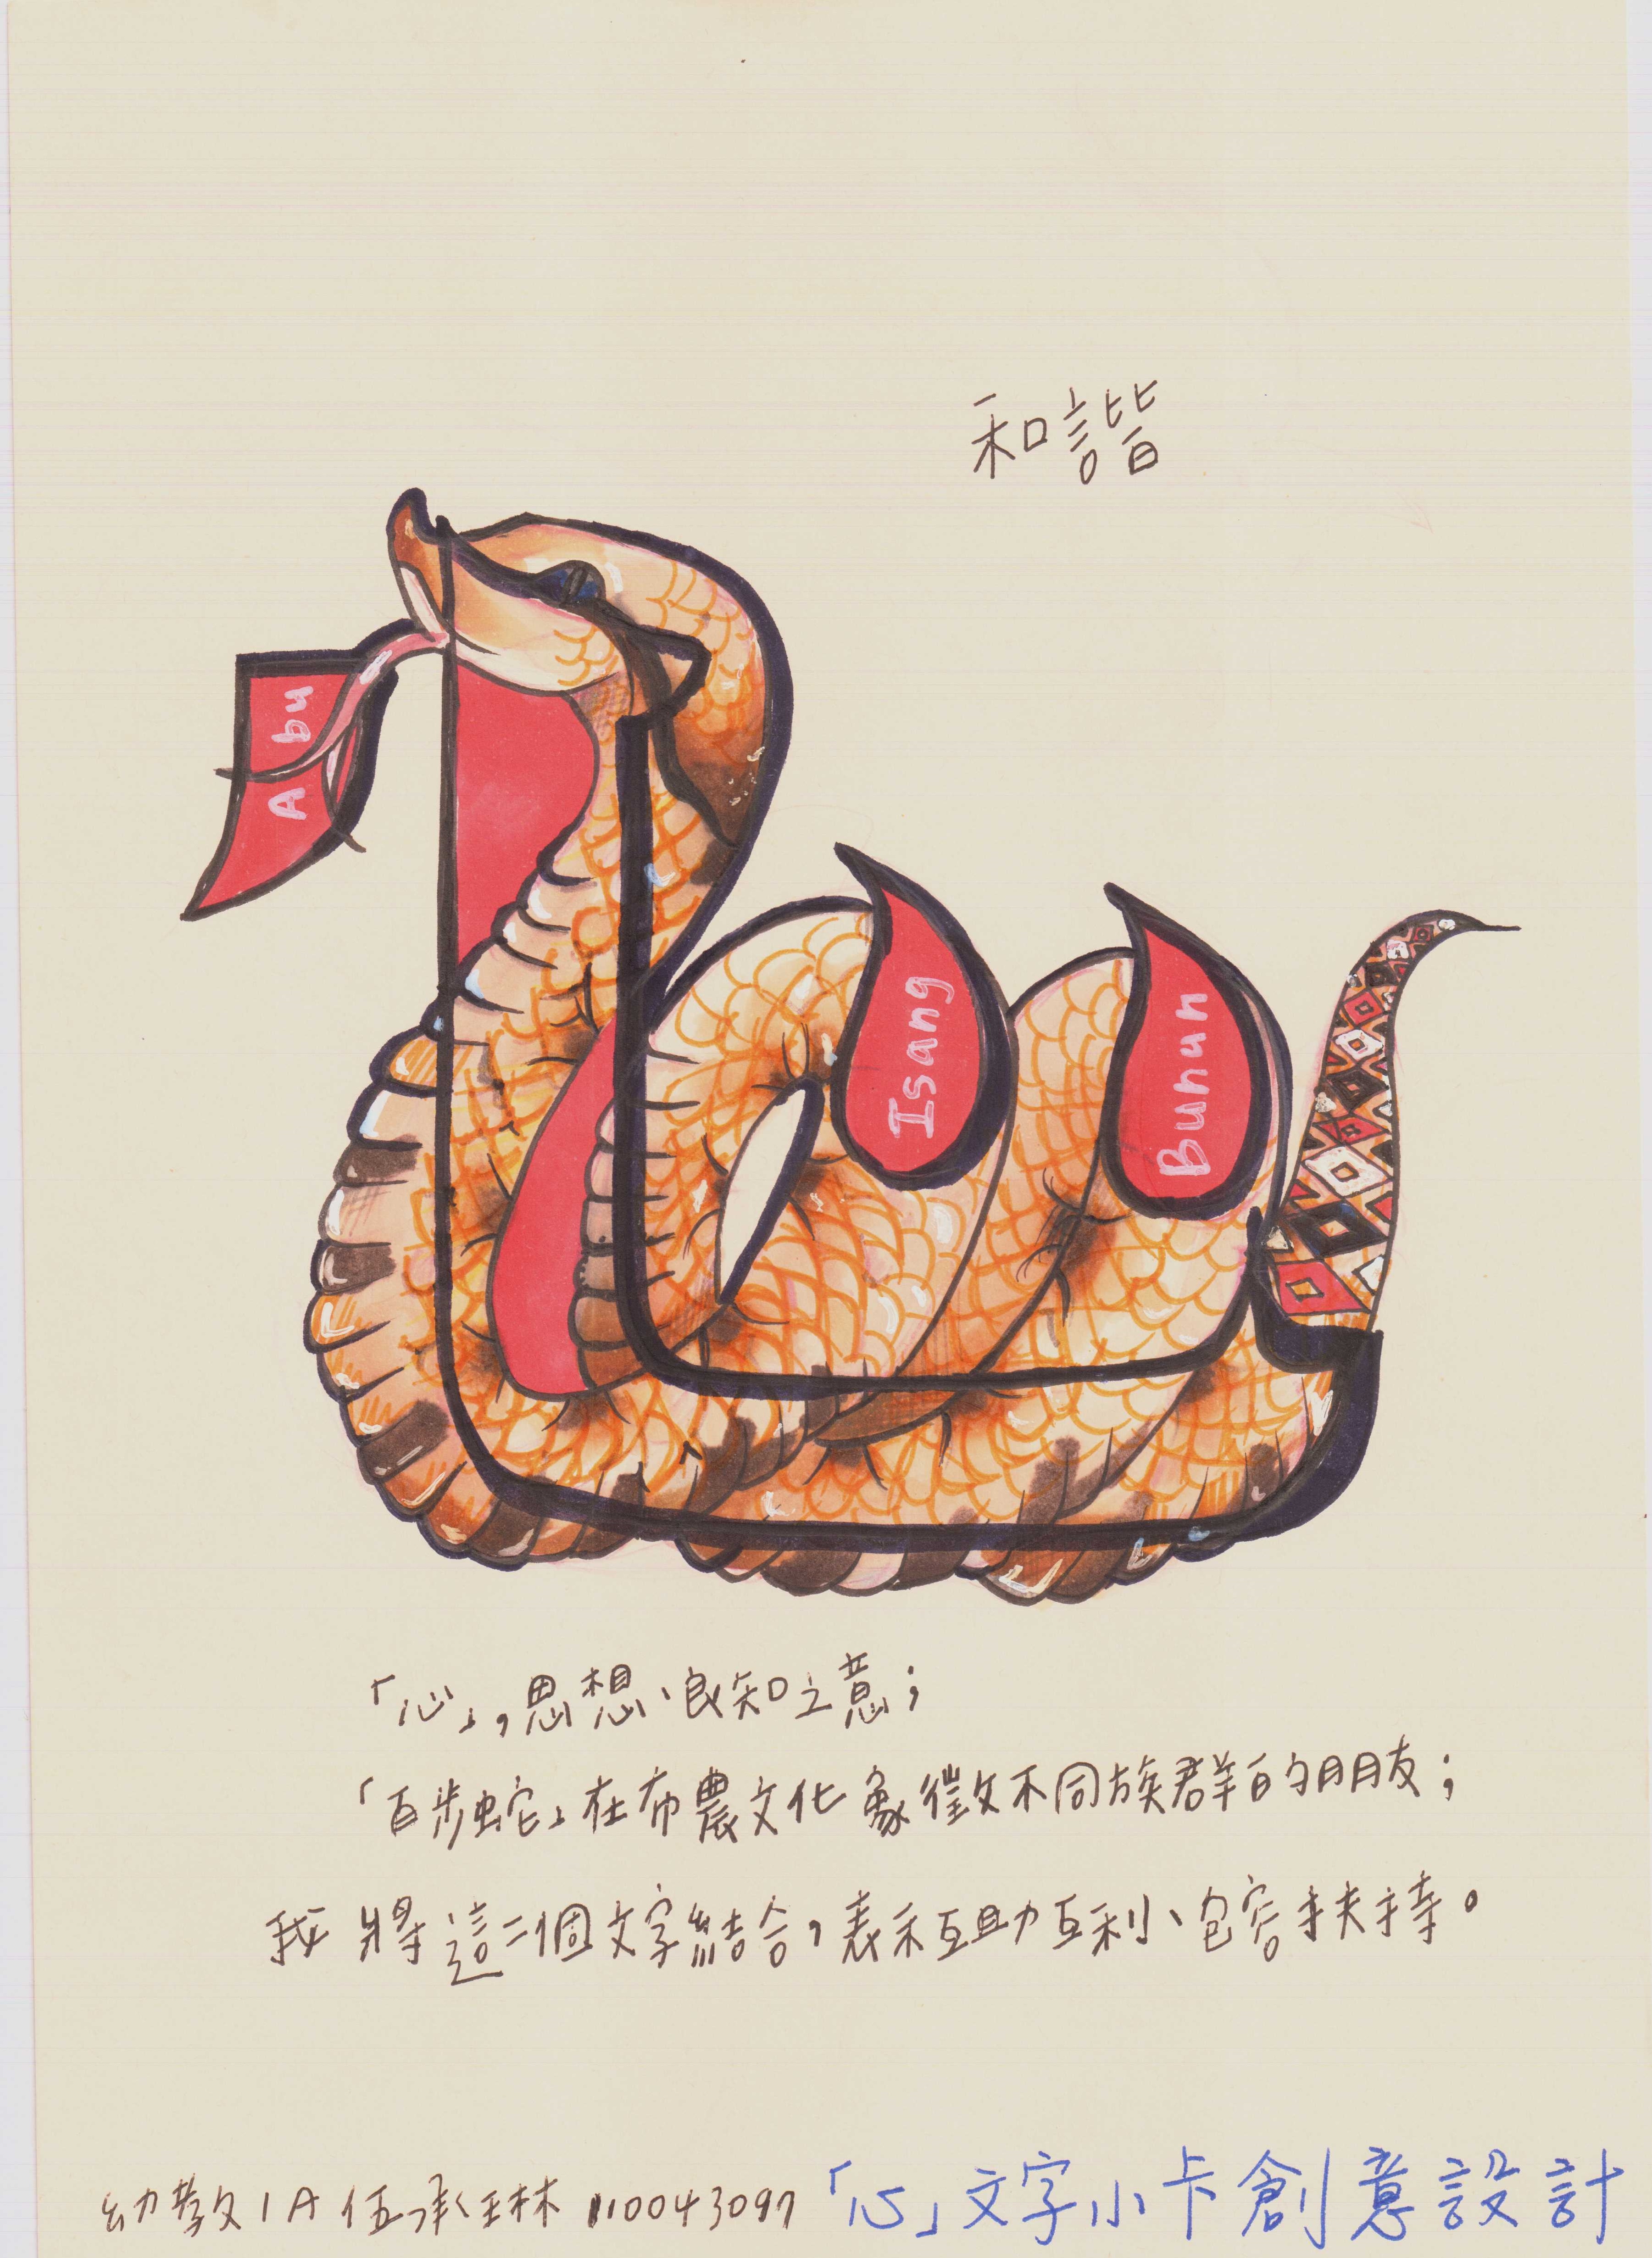 和諧
Abu
Isang
Bunun
「心」,思想、良知之意；
「百步蛇」在布農文化象徵不同族群的朋友；
我將這二個文字結合，表示互助互利、包容扶持。
幼教1A 伍承琳 110043097 「心」文字小卡創意設計